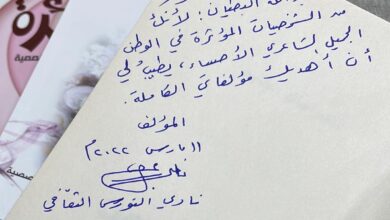 البصمان: لأنك
من الشخصيات المؤثرة في الوطن
الجميل لشاعري الأحساء، يطيب لي
أن أهديك مؤلفاتي الكاملة.
المؤلف
١١ مارس ٢٠٢٢م
نادي النورس الثقافي